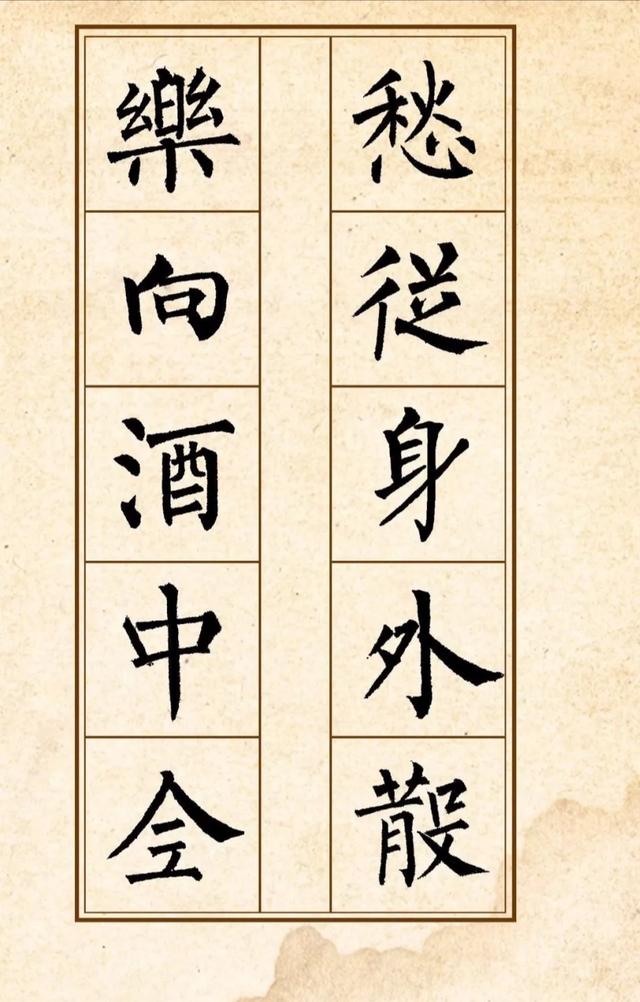 愁從身外散
樂向酒中仝